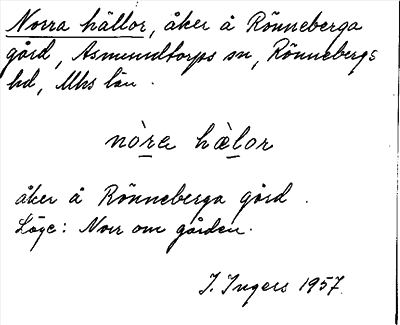 Norra hällor, åker å Rönneberga
gård, Asmundtorps sn, Rönnebergs
hd, Mhs län.
nòra hælor
åker å Rönneberga gård.
Läge: Norr om gården.
I. Ingers 1957.